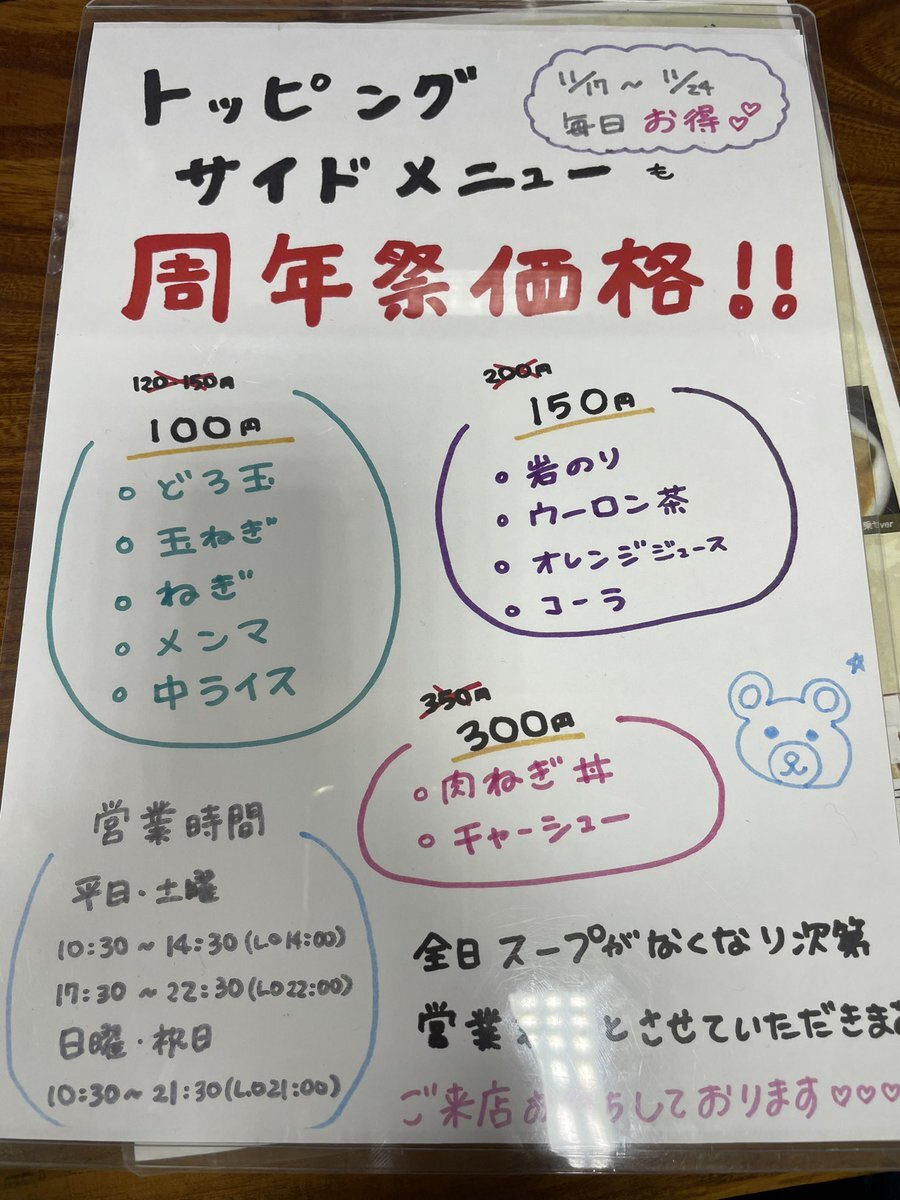 トッピング
サイドメニューも
11/17～11/24
毎日お得
周年祭価格!!
120 150円
100円
どろ玉
玉ねぎ
ねぎ
メンマ
中ライス
200円
150円
岩のり
ウーロン茶
オレンジジュース
コーラ
350円
300円
肉ねぎ丼
チャーシュー
営業時間
平日・土曜
10:30～14:30(LO14:00)
17:30～22:30(LO22:00)
日曜・祝日
10:30～21:30(L.O21:00)
全日スープがなくなり次第
営業 とさせていただきます
ご来店お ちしております
ver